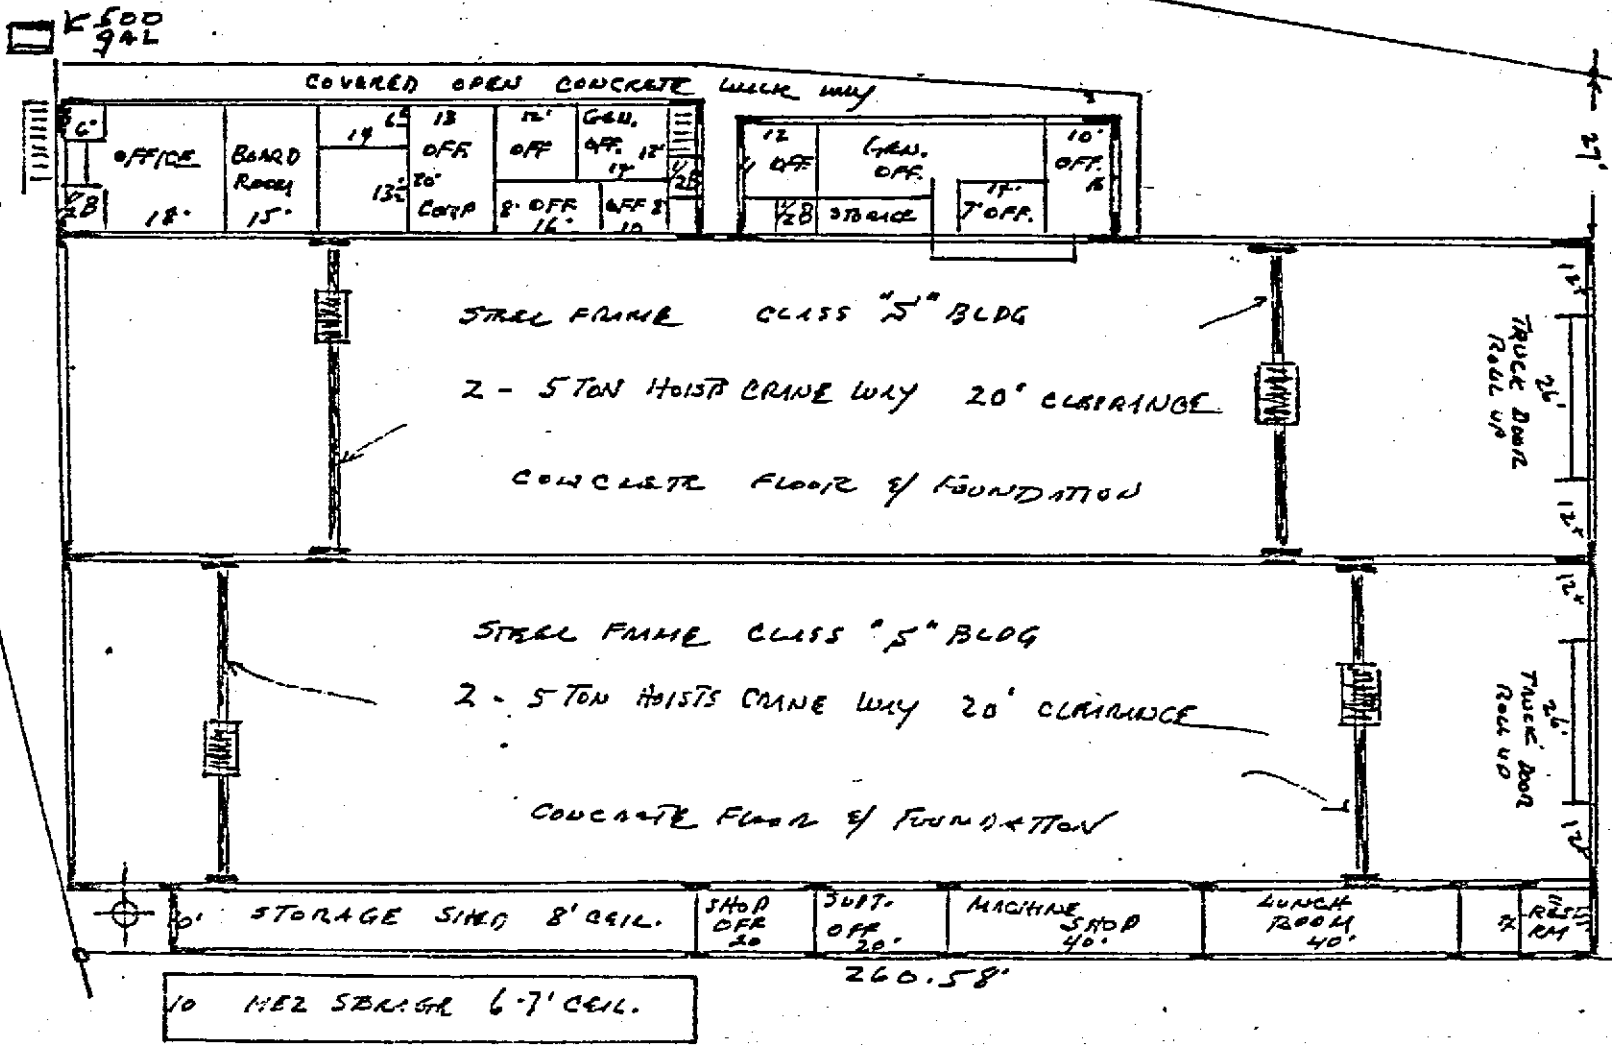 500
GAL
COVERED OPEN CONCRETE WALK WAY
6'
OFFICE
18'
1/2B
BOARD
ROOM
15'
14
13
OFF.
20'
COMP
12'
OFF
GEN.
OFF.
12'
8' OFF
16'
OFF 8
10
1/2B
12
OFF
GEN.
OFF.
10'
OFF.
16
1/2B
STORAGE
17'
7' OFF.
27'
STEEL FRAME CLASS "S" BLDG
2 - 5 TON HOISTS CRANE WAY 20' CLEARANCE
CONCRETE FLOOR & FOUNDATION
12'
26'
TRUCK DOOR
ROLL UP
12'
STEEL FRAME CLASS "S" BLDG
2 - 5 TON HOISTS CRANE WAY 20' CLEARANCE
CONCRETE FLOOR & FOUNDATION
12'
26'
TRUCK DOOR
ROLL UP
12'
STORAGE SHED 8' CEIL.
SHOP
OFF
20
SUPT.
OFF
20'
MACHINE
SHOP
40'
LUNCH
ROOM
40'
REST
RM
260.58'
10 MEZ STORAGE 6-7' CEIL.